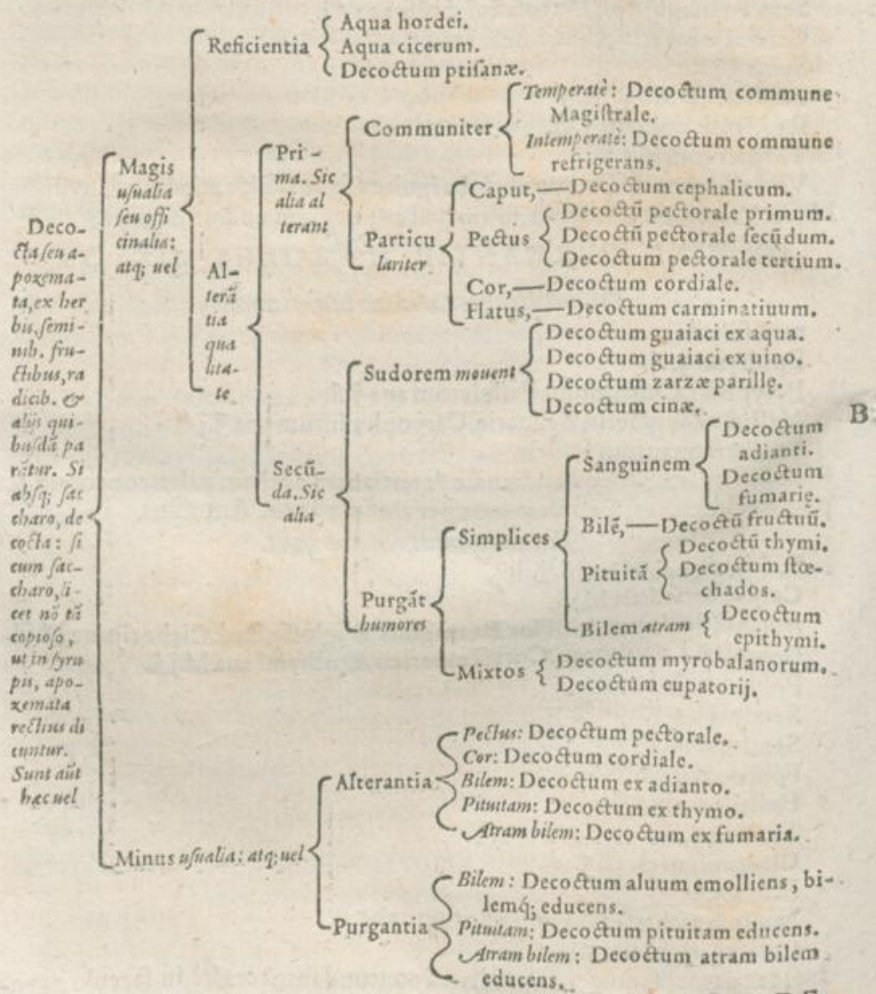 Deco-
cta seu a-
pozema-
ta, ex her
bis, semi-
nib. fru-
ctibus, ra
dicib. &
alijs qui-
busdā pa
rātur. Si
absq; sac
charo, de
cocta: si
cum sac-
charo, li-
cet nō tā
copioso,
ut in syru
pis, apo-
zemata
rectius di
cuntur.
Sunt aūt
hæc uel
Magis
usualia
seu offi
cinalia:
atq; uel
Reficientia
Aqua hordei.
Aqua cicerum.
Decoctum ptisanæ.
Al-
terā
tia
qua
lita-
te
Pri-
ma. Sic
alia al
terant
Communiter
Temperatè: Decoctum commune
Magistrale.
Intemperatè: Decoctum commune
refrigerans.
Particu
lariter
Caput,—Decoctum cephalicum.
Pectus
Decoctū pectorale primum.
Decoctū pectorale secūdum.
Decoctum pectorale tertium.
Cor,—Decoctum cordiale.
Flatus,—Decoctum carminatiuum.
Secū-
da. Sic
alia
Sudorem mouent
Decoctum guaiaci ex aqua.
Decoctum guaiaci ex uino.
Decoctum zarzæ parillę.
Decoctum cinæ.
Purgāt
humores
Simplices
Sanguinem
Decoctum
adianti.
Decoctum
fumarię.
Bilē,—Decoctū fructuū.
Pituitā
Decoctū thymi.
Decoctum stœ-
chados.
Bilem atram
Decoctum
epithymi.
Mixtos
Decoctum myrobalanorum.
Decoctum eupatorij.
Minus usualia: atq; uel
Alterantia
Pectus: Decoctum pectorale.
Cor: Decoctum cordiale.
Bilem: Decoctum ex adianto.
Pituitam: Decoctum ex thymo.
Atram bilem: Decoctum ex fumaria.
Purgantia
Bilem: Decoctum aluum emolliens, bi-
lemq́; educens.
Pituitam: Decoctum pituitam educens.
Atram bilem: Decoctum atram bilem
educens.
B